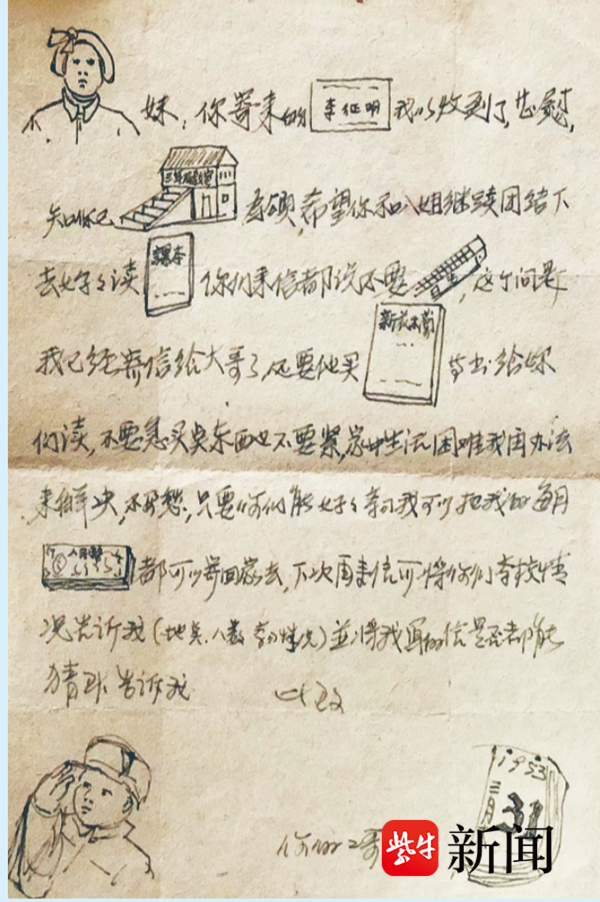 妹：你寄来的 李征明 我以收到了,甚慰,
知你已 希望你和八姐继续团结下
去好々读 课本 你们来信都说不要 ,这个问题
我已经寄信给大哥了,还要他买 等书给你
们读,不要急买 东西也不要紧,家中生活困难我有办法
来解决,不必愁,只要你们能好々学习我可以把我的每月
人民币 都可以寄回家去,下次再来信可将你们学校情
况告诉我(地点、人数 学习情况)並将我写的信是否都能
猜到 告诉我 此致
1953
三月 31
你的二哥
紫牛 新闻